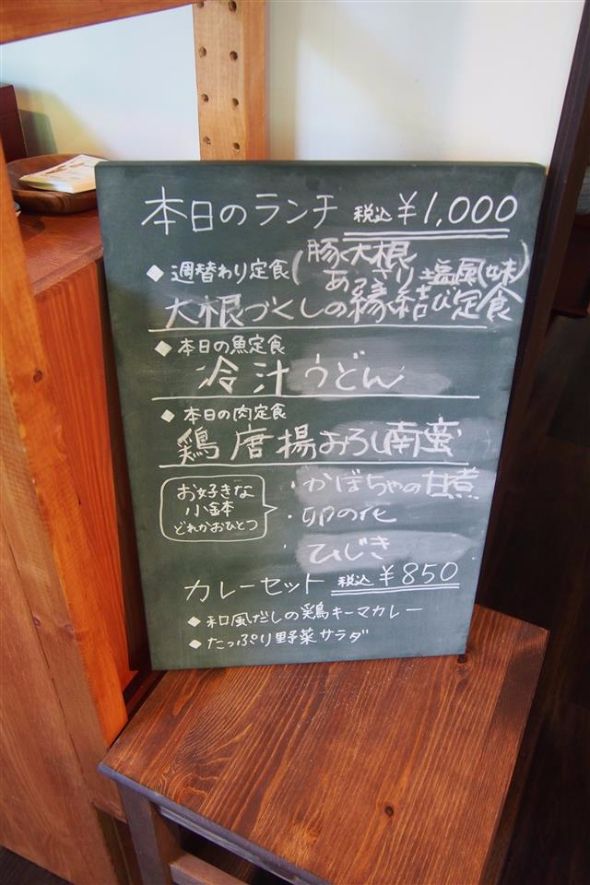 本日のランチ 税込 ¥1,000
◆ 週替わり定食(豚大根 あっさり塩風味)
大根づくしの縁結び定食
◆ 本日の魚定食
冷汁うどん
◆ 本日の肉定食
鶏唐揚おろし南蛮
お好きな
小鉢
どれかおひとつ
・かぼちゃの甘煮
・卯の花
・ひじき
カレーセット 税込 ¥850
◆ 和風だしの鶏キーマカレー
◆ たっぷり野菜サラダ